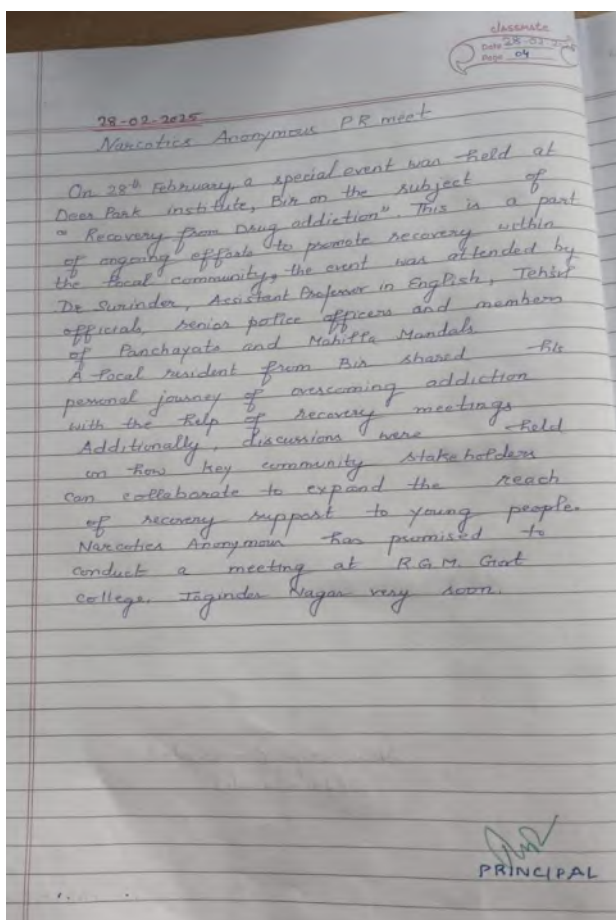 classmate
Date 28-02-2025
Page 04
28-02-2025
Narcotics Anonymous PR meet
On 28th February, a special event was held at
Deer Park institute, Bir on the subject of
"Recovery from Drug addiction". This is a part
of ongoing efforts to promote recovery within
the local community, the event was attended by
Dr Surinder, Assistant Professor in English, Tehsil
officials, senior police officers and members
of Panchayats and Mahilla Mandals
A local resident from Bir shared his
personal journey of overcoming addiction
with the help of recovery meetings
Additionally, discussions were held
on how key community stakeholders
can collaborate to expand the reach
of recovery support to young people.
Narcotics Anonymous has promised to
conduct a meeting at R.G.M. Govt
college, Joginder Nagar very soon.
PRINCIPAL